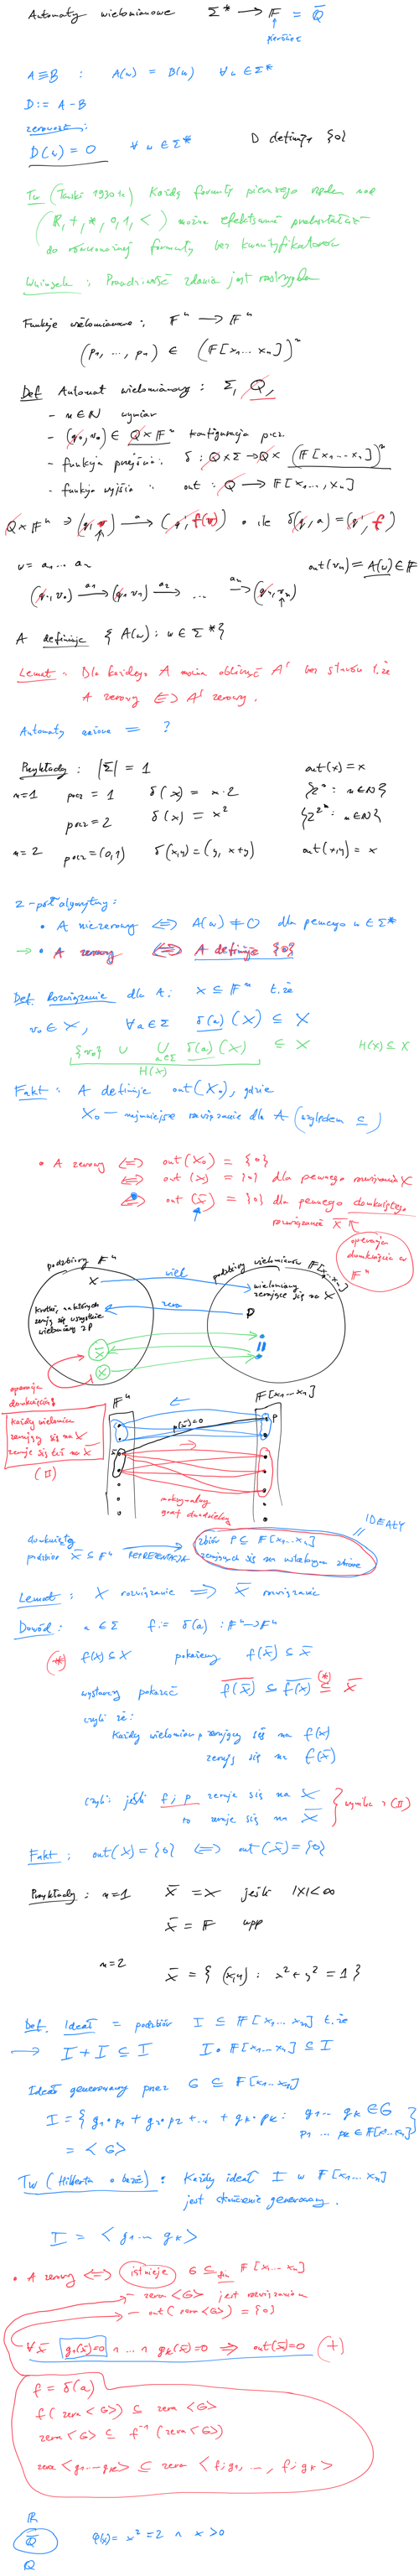 Automaty wielomianowe Σ* → 𝔽 = Q̄
pierścień
A ≡ B : A(w) = B(w) ∀ w ∈ Σ*
D := A - B
zerowość:
D(w) = 0 ∀ w ∈ Σ* D definiuje {0}
Tw (Tarski 1930's) Każdą formułę pierwszego rzędu nad
(ℝ, +, *, 0, 1, <) można efektywnie przekształcić
do równoważnej formuły bez kwantyfikatorów
Wniosek : Prawdziwość zdania jest rozstrzygalna
Funkcje wielomianowe : 𝔽ⁿ → 𝔽ⁿ
(p₁, ..., pₙ) ∈ (𝔽[x₁...xₙ])ⁿ
Def Automat wielomianowy : Σ, Q,
- n ∈ ℕ wymiar
- (q₀, v₀) ∈ Q × 𝔽ⁿ konfiguracja pocz.
- funkcja przejścia : δ : Q × Σ → Q × (𝔽[x₁...xₙ])ⁿ
- funkcja wyjścia : out : Q → 𝔽[x₁,...,xₙ]
Q × 𝔽ⁿ ∋ (q, v) →ᵃ (q', f(v)) o ile δ(q, a) = (q', f)
w = a₁ ... aₙ out(vₙ) = A(w) ∈ 𝔽
(q₀, v₀) →ᵃ¹ (q₁, v₁) →ᵃ² ... →ᵃⁿ (qₙ, vₙ)
A definiuje { A(w) : w ∈ Σ* }
Lemat : Dla każdego A można obliczyć A' bez stanów t. że
A zerowy ⟺ A' zerowy.
Automaty ważone = ?
Przykłady : |Σ| = 1 out(x) = x
n=1 pocz = 1 δ(x) = x·2 {2ⁿ : n ∈ ℕ}
pocz = 2 δ(x) = x² {2^2ⁿ : n ∈ ℕ}
n=2 pocz = (0,1) δ(x,y) = (y, x+y) out(x,y) = x
2 - półalgorytmy :
• A niezerowy ⟺ A(w) ≠ 0 dla pewnego w ∈ Σ*
→ • A zerowy ⟺ A definiuje {0}
Def. Rozwiązanie dla A : X ⊆ 𝔽ⁿ t. że
v₀ ∈ X, ∀a∈Σ δ(a)(X) ⊆ X
{v₀} ∪ ⋃ a∈Σ δ(a)(X) ⊆ X H(X) ⊆ X
H(X)
Fakt : A definiuje out(X₀), gdzie
X₀ - najmniejsze rozwiązanie dla A (względem ⊆)
• A zerowy ⟺ out(X₀) = {0}
⟺ out(X) = {0} dla pewnego rozwiązania X
⟺ out(X̄) = {0} dla pewnego domkniętego
rozwiązania X̄
operacja
domknięcia w
𝔽ⁿ
podzbiory 𝔽ⁿ podzbiory wielomianów 𝔽[x₁...xₙ]
X wiel wielomiany
zerujące się na X
krotki, na których
zerują się wszystkie
wielomiany z P
zera P
X̄
X
operacja
domknięcia
każdy wielomian
zerujący się na X
zeruje się też na X̄
(□)
𝔽ⁿ 𝔽[x₁...xₙ]
p(x̄)=0 p
maksymalny
graf dwudzielny
IDEAŁY
domknięty
podzbiór X̄ ⊆ 𝔽ⁿ REPREZENTACJA zbiór P ⊆ 𝔽[x₁...xₙ]
zerujących się na własnym zbiorze
Lemat : X rozwiązanie ⟹ X̄ rozwiązanie
Dowód : a ∈ Σ f := δ(a) : 𝔽ⁿ → 𝔽ⁿ
(*) f(X) ⊆ X pokażemy f(X̄) ⊆ X̄
wystarczy pokazać f(X̄) ⊆ f(X) ⊆ X̄ (*)
czyli że :
każdy wielomian p zerujący się na f(X)
zeruje się na f(X̄)
czyli : jeśli f;p zeruje się na X
to zeruje się na X̄ } wynika z (□)
Fakt : out(X) = {0} ⟺ out(X̄) = {0}
Przykłady : n=1 X̄ = X jeśli |X| < ∞
X̄ = 𝔽 wpp
n=2 X̄ = { (x,y) : x² + y² = 1 }
Def. Ideał = podzbiór I ⊆ 𝔽[x₁...xₙ] t. że
→ I + I ⊆ I I · 𝔽[x₁...xₙ] ⊆ I
Ideał generowany przez G ⊆ 𝔽[x₁...xₙ]
I = { g₁·p₁ + g₂·p₂ + ... + gₖ·pₖ : g₁...gₖ ∈ G
p₁...pₖ ∈ 𝔽[x₁...xₙ] }
= <G>
Tw (Hilberta o bazie) : Każdy ideał I w 𝔽[x₁...xₙ]
jest skończenie generowany.
I = <g₁...gₖ>
• A zerowy ⟺ istnieje G ⊆fin 𝔽[x₁...xₙ]
- zera <G> jest rozwiązaniem
- out(zera <G>) = {0}
∀x̄ g₁(x̄)=0 ∧ ... ∧ gₖ(x̄)=0 ⟹ out(x̄)=0 (+)
f = δ(a)
f(zera <G>) ⊆ zera <G>
zera <G> ⊆ f⁻¹(zera <G>)
zera <g₁...gₖ> ⊆ zera <f;g₁, ..., f;gₖ>
ℝ
Q̄ φ(x) = x² = 2 ∧ x > 0
Q